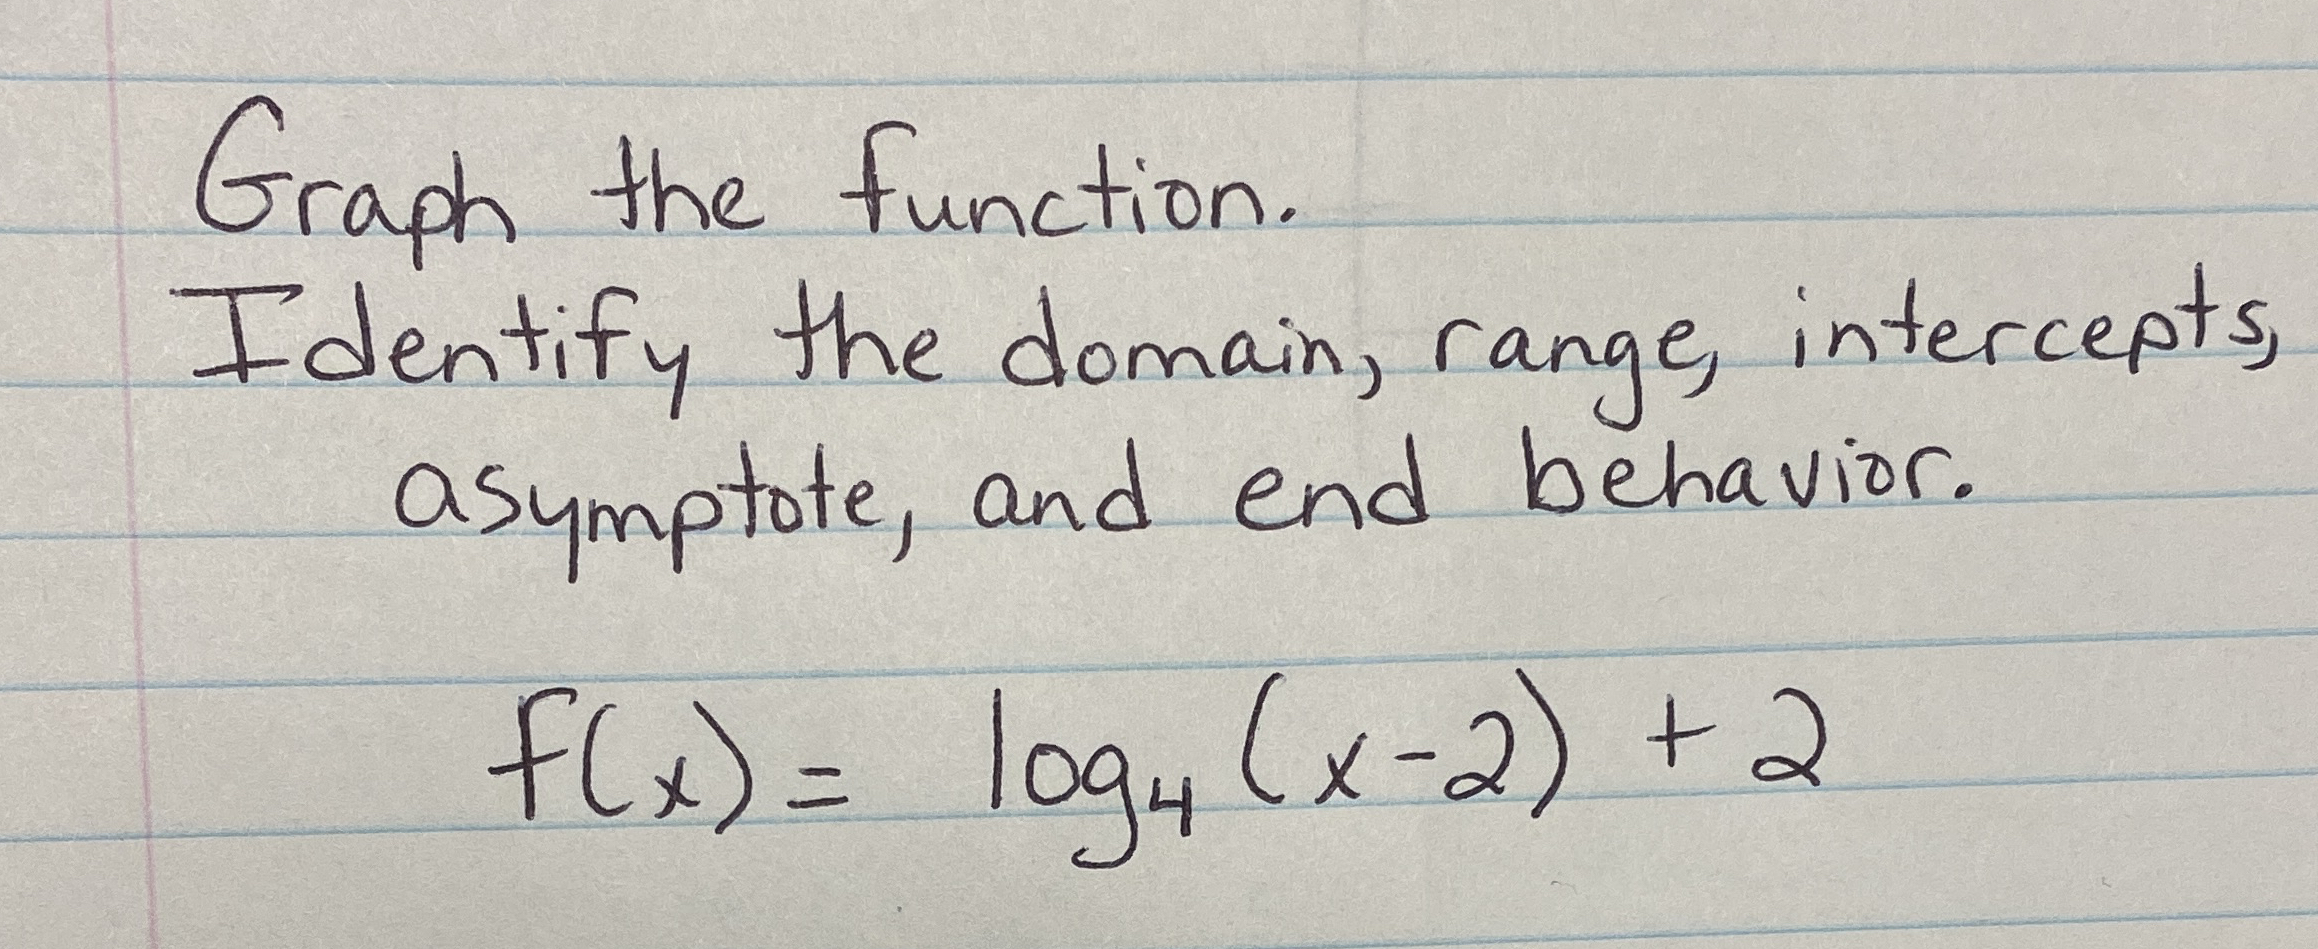 Graph the function.
Identify the domain, range, intercepts,
asymptote, and end behavior.
f(x) = log₄ (x-2) + 2